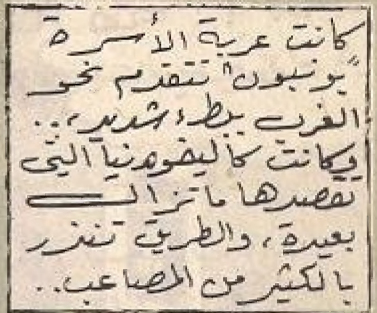 كانت عربة الأسرة
"يونيون" تتقدم نحو
الغرب ببطء شديد،..
وكانت كاليفورنيا التى
تقصدها ما تزال
بعيدة، والطريق تنذر
بالكثير من المصاعب..